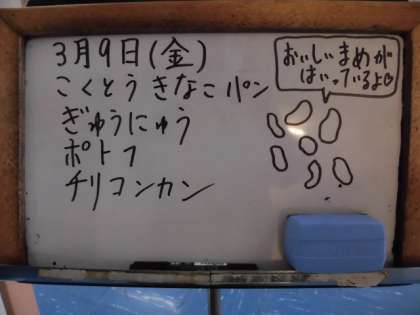 3月9日(金)
こくとうきなこパン
ぎゅうにゅう
ポトフ
チリコンカン
おいしいまめが
はいっているよ♡